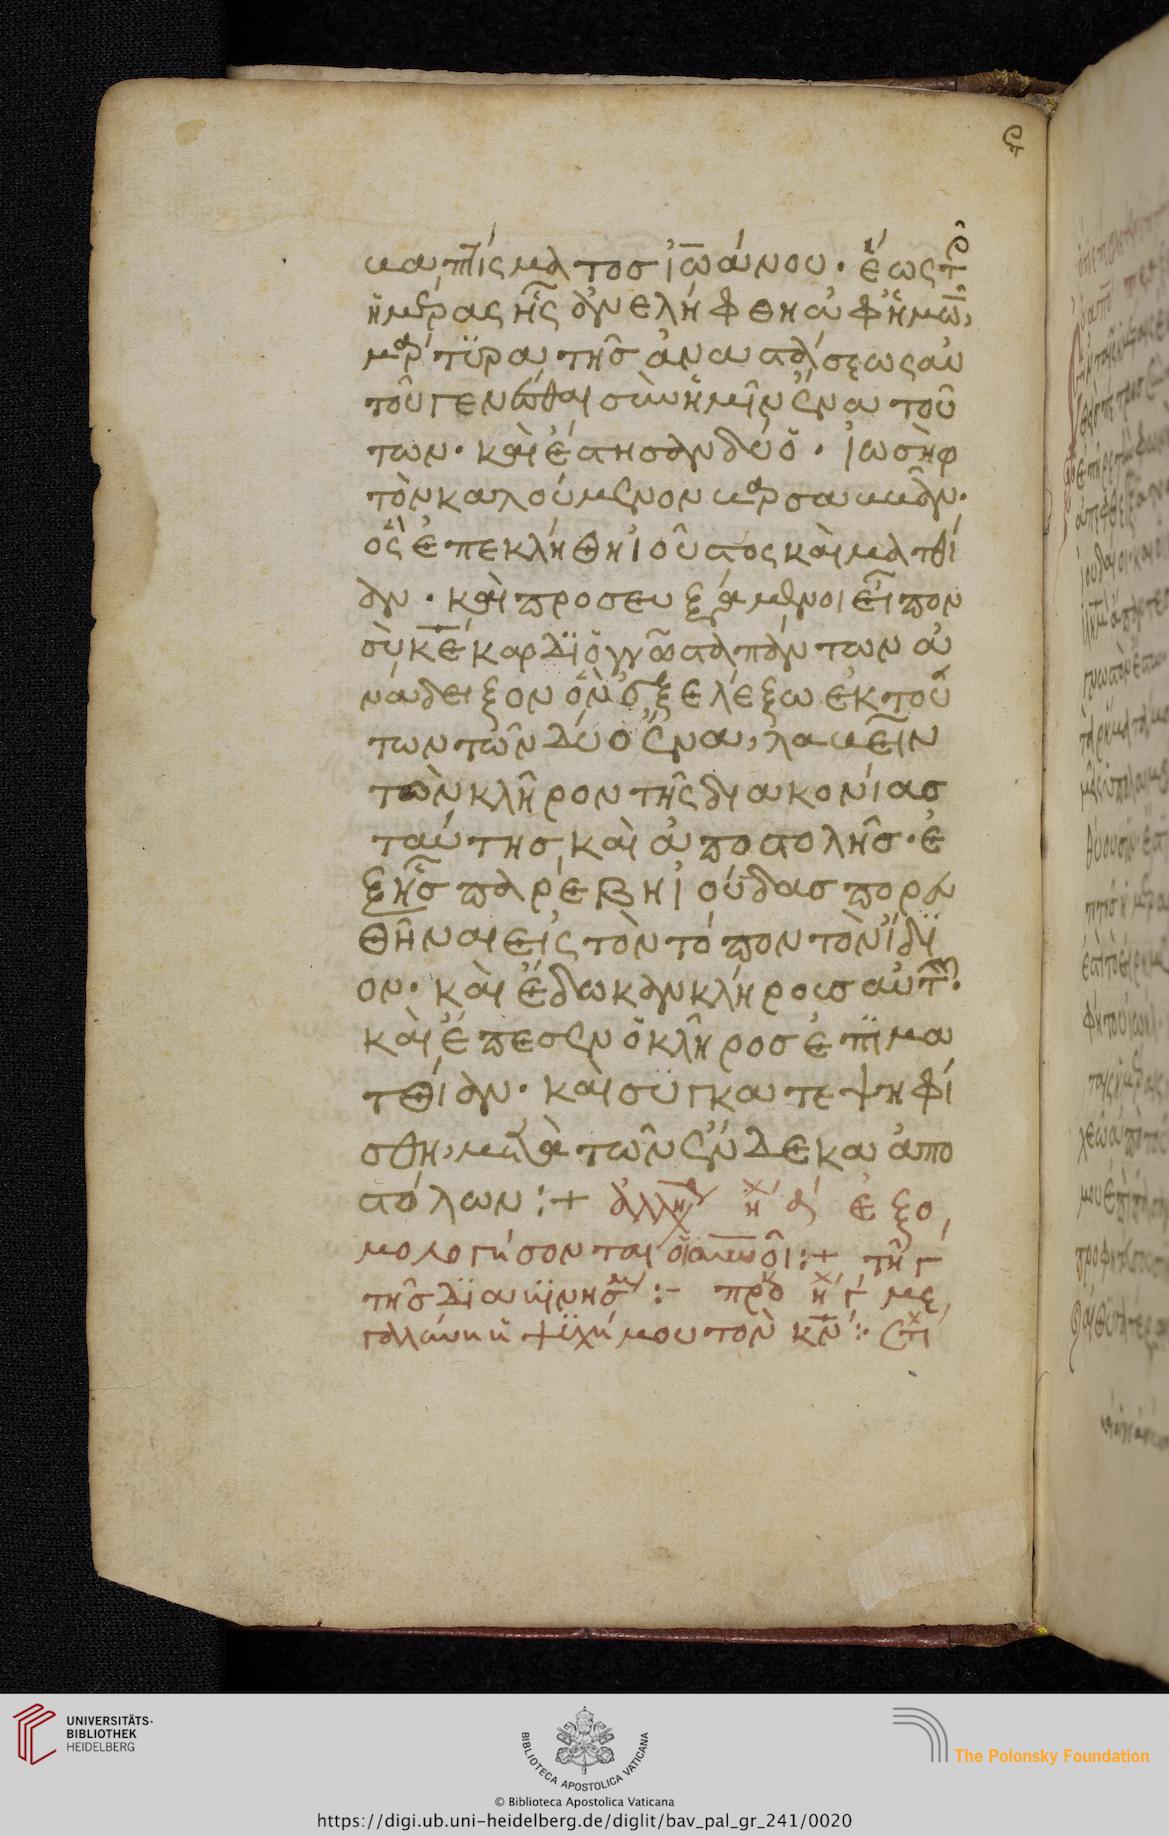 βαπτίσματος ἰωάννου· ἕως τῆς
ἡμέρας ἧς ἀνελήφθη ἀφ' ἡμῶν,
μάρτυρα τῆς ἀναστάσεως αὐ
τοῦ γενέσθαι σὺν ἡμῖν ἕνα τού
των· καὶ ἔστησαν δύο· ἰωσὴφ
τὸν καλούμενον βαρσαββᾶν·
ὃς ἐπεκλήθη ἰοῦστος καὶ ματθί
αν· καὶ προσευξάμενοι εἶπον
σὺ κε καρδιογνῶστα πάντων ἀ
νάδειξον ὃν ἐξελέξω ἐκ τού
των τῶν δύο ἕνα, λαβεῖν
τὸν κλῆρον τῆς διακονίας
ταύτης καὶ ἀποστολῆς· ἐ
ξ ἧς παρέβη ἰούδας πορευ
θῆναι εἰς τὸν τόπον τὸν ἴδι
ον· καὶ ἔδωκαν κλήρους αὐτῶν·
καὶ ἔπεσεν ὁ κλῆρος ἐπὶ μα
τθίαν· καὶ συγκατεψηφί
σθη, μετὰ τῶν ἕνδεκα ἀπο
στόλων :+ ἐξο,
μολογήσονται οἱ οὐνοὶ :+ τῇ γ
τῆς διακινησ :- μεγ,
γαλύνει ἡ ψυχή μου τὸν κν :· στι
UNIVERSITÄTS-
BIBLIOTHEK
HEIDELBERG
BIBLIOTECA APOSTOLICA VATICANA
The Polonsky Foundation
© Biblioteca Apostolica Vaticana
https://digi.ub.uni-heidelberg.de/diglit/bav_pal_gr_241/0020